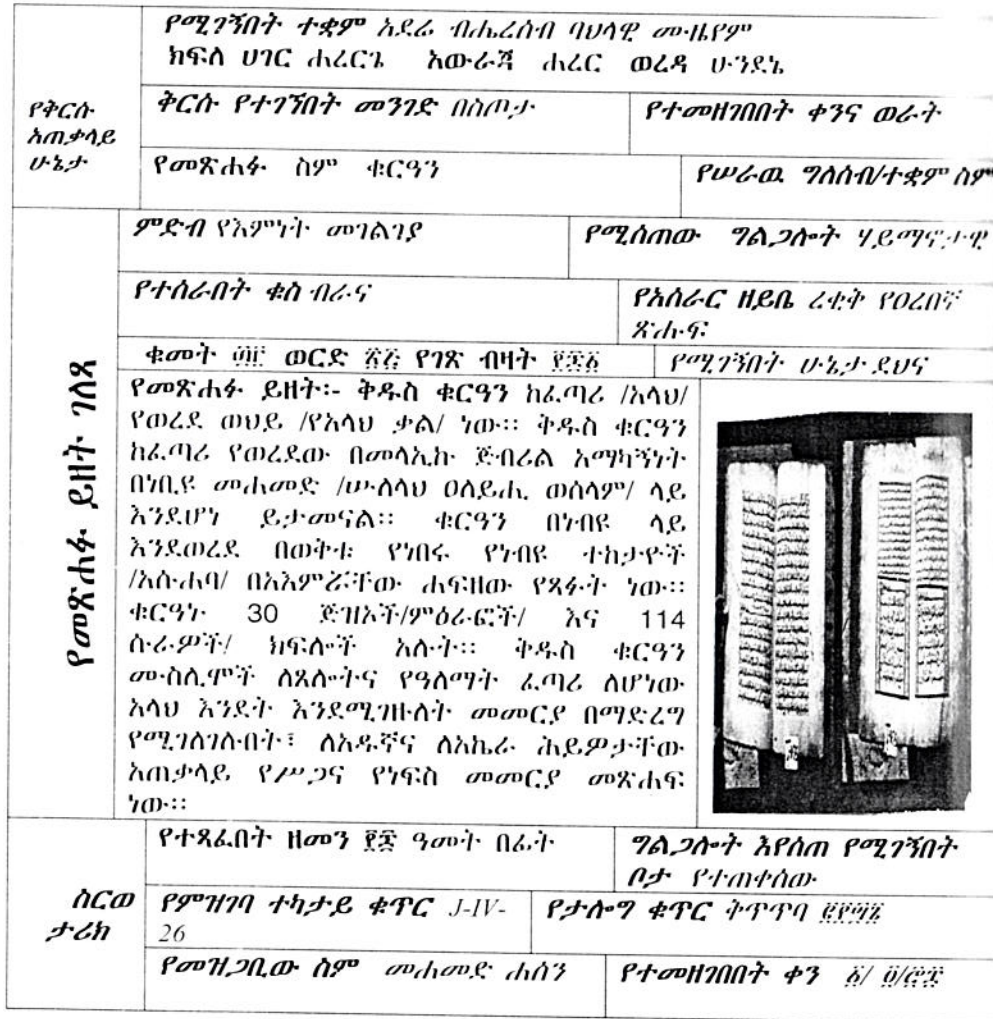 የሚገኝበት ተቋም አደሬ ብሔረሰብ ባህላዊ ሙዜየም
ክፍለ ሀገር ሐረርጌ አውራጃ ሐረር ወረዳ ሁንደኔ
የቅርሱ አጠቃላይ ሁኔታ
ቅርሱ የተገኘበት መንገድ በስጦታ
የተመዘገበበት ቀንና ወራት
የመጽሐፉ ስም ቁርዓን
የሠራዉ ግለሰብ/ተቋም ስም
የመጽሐፉ ይዘት ገለጻ
ምድብ የእምነት መገልገያ
የሚሰጠው ግልጋሎት ሃይማኖታዊ
የተሰራበት ቁስ ብራና
የአሰራር ዘይቤ ረቂቅ የዐረበኛ
ጽሑፍ
ቁመት ወርድ የገጽ ብዛት
የሚገኝበት ሁኔታ ደህና
የመጽሐፉ ይዘት፡- ቅዱስ ቁርዓን ከፈጣሪ /አላህ/
የወረደ ወህይ /የአላህ ቃል/ ነው፡፡ ቅዱስ ቁርዓን
ከፈጣሪ የወረደው በመላኢኩ ጅብሪል አማካኝነት
በነቢዩ መሐመድ /ሡለላህ ዐለይሒ ወሰላም/ ላይ
እንደሆነ ይታመናል፡፡ ቁርዓን በነብዩ ላይ
እንደወረደ በወቅቱ የነበሩ የነብዩ ተከታዮች
/አሱሐባ/ በአእምሯቸው ሐፍዘው የጻፉት ነው፡፡
ቁርዓኑ 30 ጅዝኦች/ምዕራፎች/ እና 114
ሱራዎች/ ክፍሎች አሉት፡፡ ቅዱስ ቁርዓን
ሙስሊሞች ለጸሎትና የዓለማት ፈጣሪ ለሆነው
አላህ እንደት እንደሚገዙለት መመርያ በማድረግ
የሚገለገሉበት፣ ለአዱኛና ለአኬራ ሕይዎታቸው
አጠቃላይ የሥጋና የነፍስ መመርያ መጽሐፍ
ነው፡፡
ስርወ ታሪክ
የተጻፈበት ዘመን ዓመት በፊት
ግልጋሎት እየሰጠ የሚገኝበት
ቦታ የተጠቀሰው
የምዝገባ ተካታይ ቁጥር J-IV-
26
የታሎግ ቁጥር ቅጥጥባ
የመዝጋቢው ስም መሐመድ ሐሰን
የተመዘገበበት ቀን